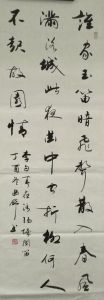 誰家玉笛暗飛聲散入春風
滿洛城此夜曲中聞折柳何人
不起故園情
李白春夜洛城聞笛
丁酉冬